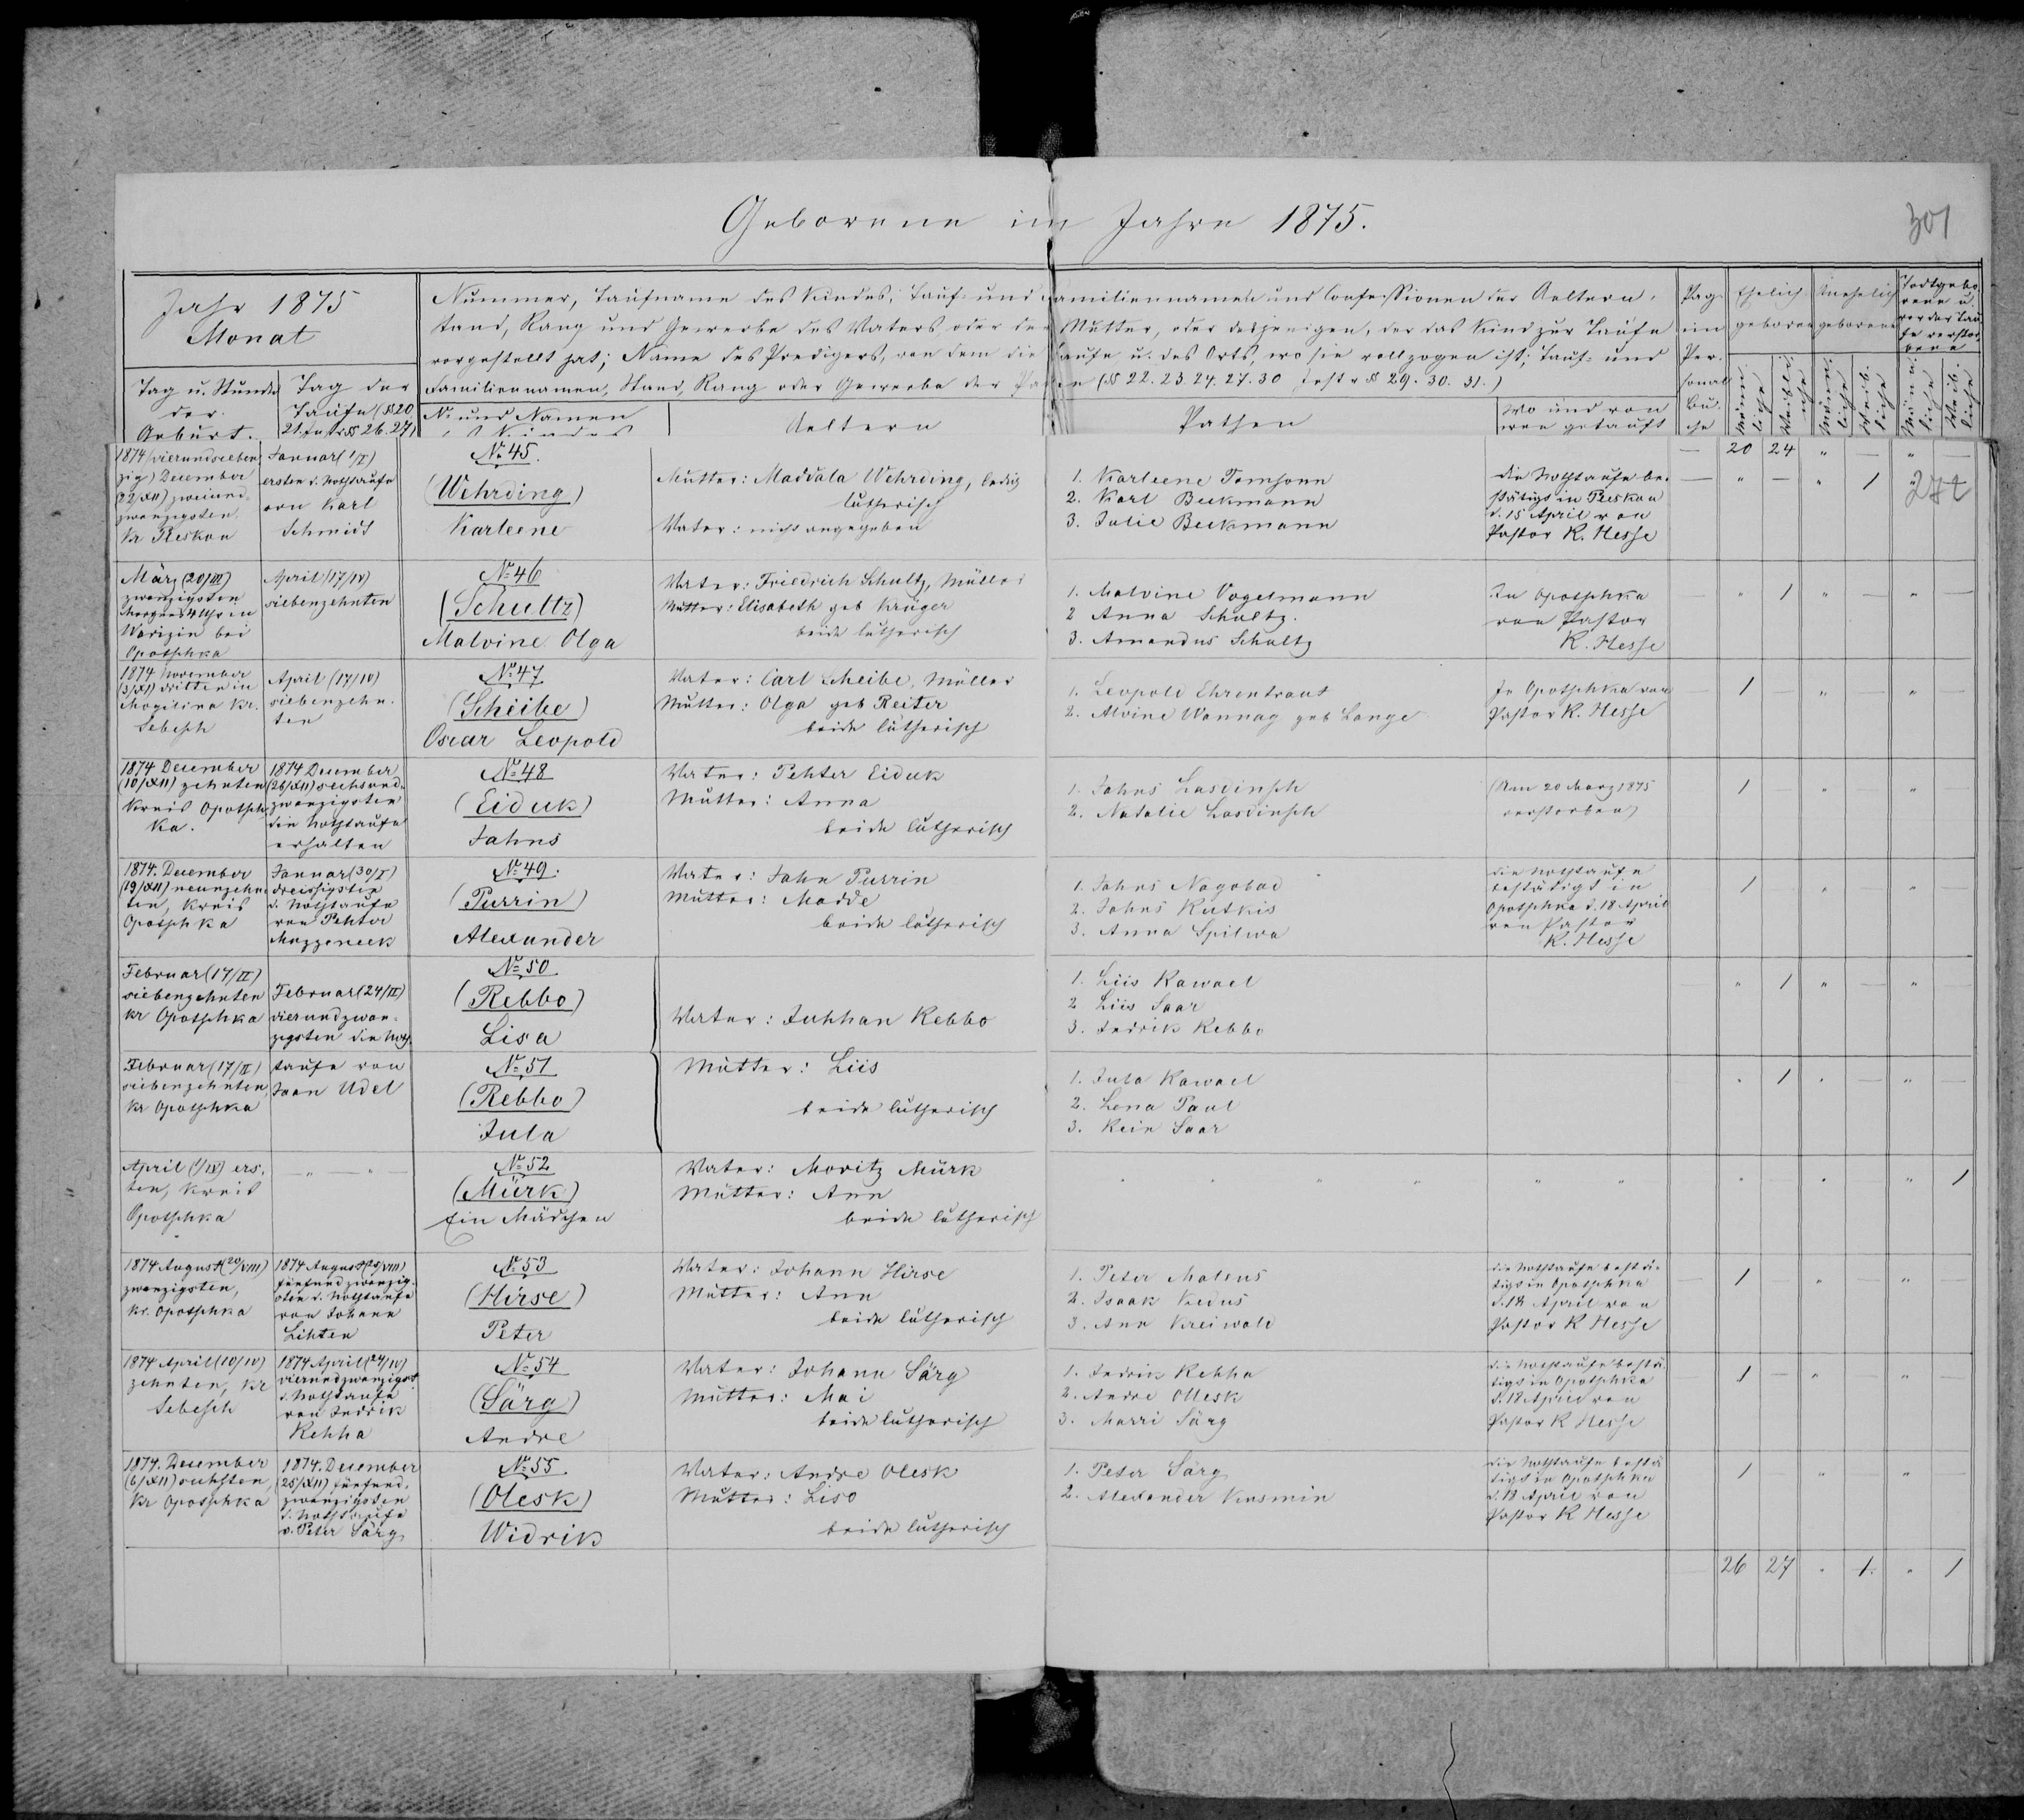 Geborene im Jahre 1875.
301
Jahr 1875
Monat
Tag u. Stunde
der
Geburt.
Tag der
Taufe (§§ 20.
21. Instr. §§ 26. 27)
Nummer, Taufname des Kindes; Tauf- und Familiennamen und Confessionen der Aeltern,
Stand, Rang und Gewerbe des Vaters oder der Mutter, oder desjenigen, der das Kind zur Taufe
vorgestellt hat; Name des Predigers, von dem die Taufe u. des Orts, wo sie vollzogen ist; Tauf- und
Familiennamen, Stand, Rang oder Gewerbe der Pathen (§§ 22. 23. 24. 27. 30 Instr §§ 29. 30. 31.)
No und Namen
des Kindes
Aeltern
Pathen
Wo und von
wem getauft
Pag.
im
Per-
sonal
Bu-
che
Ehelich
geboren
Unehelich
geborene
Todtgebo-
rene u.
vor der Tau-
fe verstor-
bene
Männ-
liche
Weibli-
che
Männ-
liche
Weib-
liche
Männ-
liche
Weib-
liche
— 20 24 „ — „ —
1874 (vierundsieben-
zig) December
(22/XII) zweiund-
zwanzigsten
Kr Pleskau
Januar (1/I)
ersten d. Nothtaufe
von Karl
Schmidt
No 45.
(Wehrding)
Karleene
Mutter: Maddala Wehrding, ledig
lutherisch
Vater: nicht angegeben
1. Karleene Tomsonn
2. Karl Beekmann
3. Julie Beekmann
Die Nothtaufe be-
stätigt in Pleskau
d. 15 April von
Pastor K. Hesse
— „ — „ 1 „
272
März (20/III)
zwanzigsten
Morgens 4 Uhr in
Warizin bei
Opotschka
April (17/IV)
siebenzehnten
No 46
(Schultz)
Malvine Olga
Vater: Friedrich Schultz, Müller
Mutter: Elisabeth geb Krüger
beide lutherisch
1. Malvine Vogelmann
2 Anna Schultz.
3. Amandus Schultz
In Opotschka
von Pastor
K. Hesse
— „ 1 „ — „ —
1874 November
(3/XI) dritten in
Mogilina Kr.
Sebesch
April (17/IV)
siebenzehn-
ten
No 47
(Scheibe)
Oscar Leopold
Vater: Carl Scheibe, Müller
Mutter: Olga geb Reiter
beide lutherisch
1. Leopold Ehrentraut
2. Alvine Wannag geb Lange
In Opotschka von
Pastor K. Hesse
— 1 — „ „ —
1874 December
(10/XII) zehnten
Kreis Opotsch-
ka.
1874 December
(26/XII) sechsund-
zwanzigsten
die Nothtaufe
erhalten
No 48
(Eiduk)
Jahns
Vater: Pehter Eiduk
Mutter: Anna
beide lutherisch
1. Jahns Lasdinsch
2. Natalie Lasdinsch
(Am 20 März 1875
verstorben)
1 „ „
1874. December
(19/XII) neunzehn-
ten, Kreis
Opotschka
Januar (30/I)
dreissigsten
d. Nothtaufe
von Pehter
Mazzeneek
No 49.
(Purrin)
Alexander
Vater: Jahn Purrin
Mutter: Madde
beide lutherisch
1. Jahns Nagobad
2. Jahns Rutkis
3. Anna Spilwa
Die Nothtaufe
bestätigt in
Opotschka d. 18 April
von Pastor
K. Hesse
1 „ „
Februar (17/II)
siebenzehnten
Kr Opotschka
Februar (24/II)
vierundzwan-
zigsten die Noth-
taufe von
Jaan Udel
No 50
(Rebbo)
Lisa
Vater: Juhhan Rebbo
Mutter: Liis
beide lutherisch
1. Liis Kawael
2 Liis Saar
3. Indrik Rebbo
„ 1 „ — „ —
Februar (17/II)
siebenzehnten,
Kr Opotschka
No 51
(Rebbo)
Jula
1. Jula Kawael
2. Lena Paul
3. Rein Saar
„ 1 „ — „ —
April (1/IV) ers-
ten, Kreis
Opotschka
— „ — „ —
No 52
(Mürk)
Ein Mädchen
Vater: Moritz Mürk
Mutter: Ann
beide lutherisch
„ „ „ „ „ „
„ — „ — „ 1
1874 August (20/VIII)
zwanzigsten,
Kr. Opotschka
1874 August (25/VIII)
fünfundzwanzig-
sten d. Nothtaufe
von Johann
Lihten
No 53
(Hirse)
Peter
Vater: Johann Hirse
Mutter: Ann
beide lutherisch
1. Peter Maltus
2. Isaak Kedus
3. Ann Kreiwald
Die Nothtaufe bestä-
tigt in Opotschka
d. 18 April von
Pastor K Hesse
— 1 „ „
1874 April (10/IV)
zehnten, Kr
Sebesch
1874 April (24/IV)
vierundzwanzigst
d. Nothtaufe
von Indrik
Rehha
No 54
(Särg)
Andre
Vater: Johann Särg
Mutter: Mai
beide lutherisch
1. Indrik Rehha
2. Andre Ollesk
3. Marri Särg
Die Nothtaufe bestä-
tigt in Opotschka
d. 18 April von
Pastor K Hesse
— 1 — „ — „ —
1874. December
(6/XII) sechsten,
Kr Opotschka
1874. December
(25/XII) fünfund-
zwanzigsten
d. Nothtaufe
v. Peter Särg
No 55
(Olesk)
Widrik
Vater: Andre Olesk
Mutter: Liso
beide lutherisch
1. Peter Särg
2. Alexander Kusmin
Die Nothtaufe bestä-
tigt in Opotschka
d. 18 April von
Pastor K Hesse
1 — „ „
26 27 „ 1. „ 1